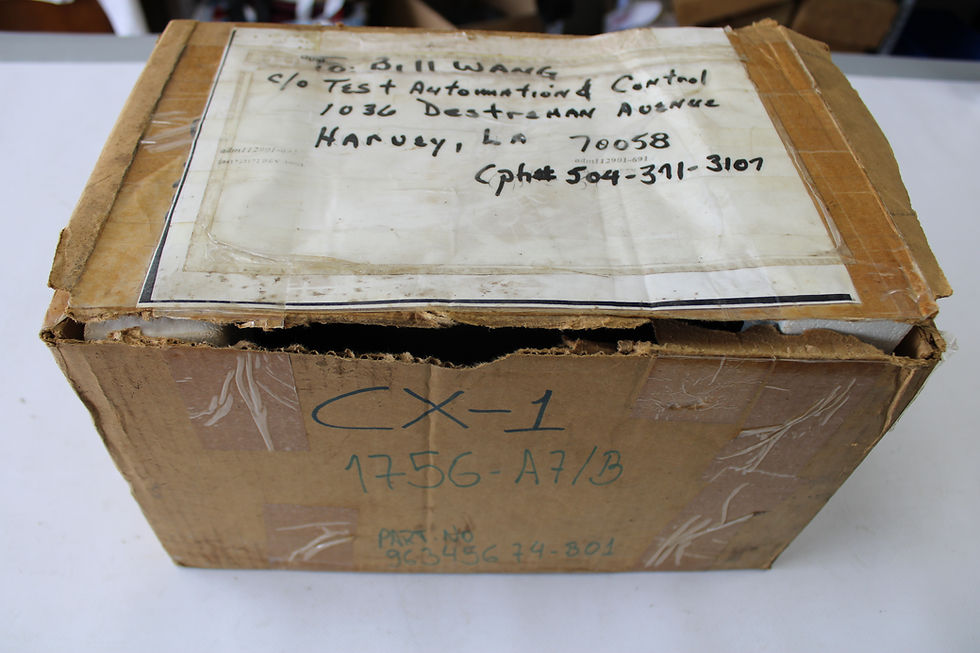 To: Bill WANG
c/o Test Automation & Control
1036 Destrehan Avenue
Harvey, LA 70058
adm112901-691
Cph# 504-371-3107
CX-1
1756-A7/B
PART.NO
963456 74-801